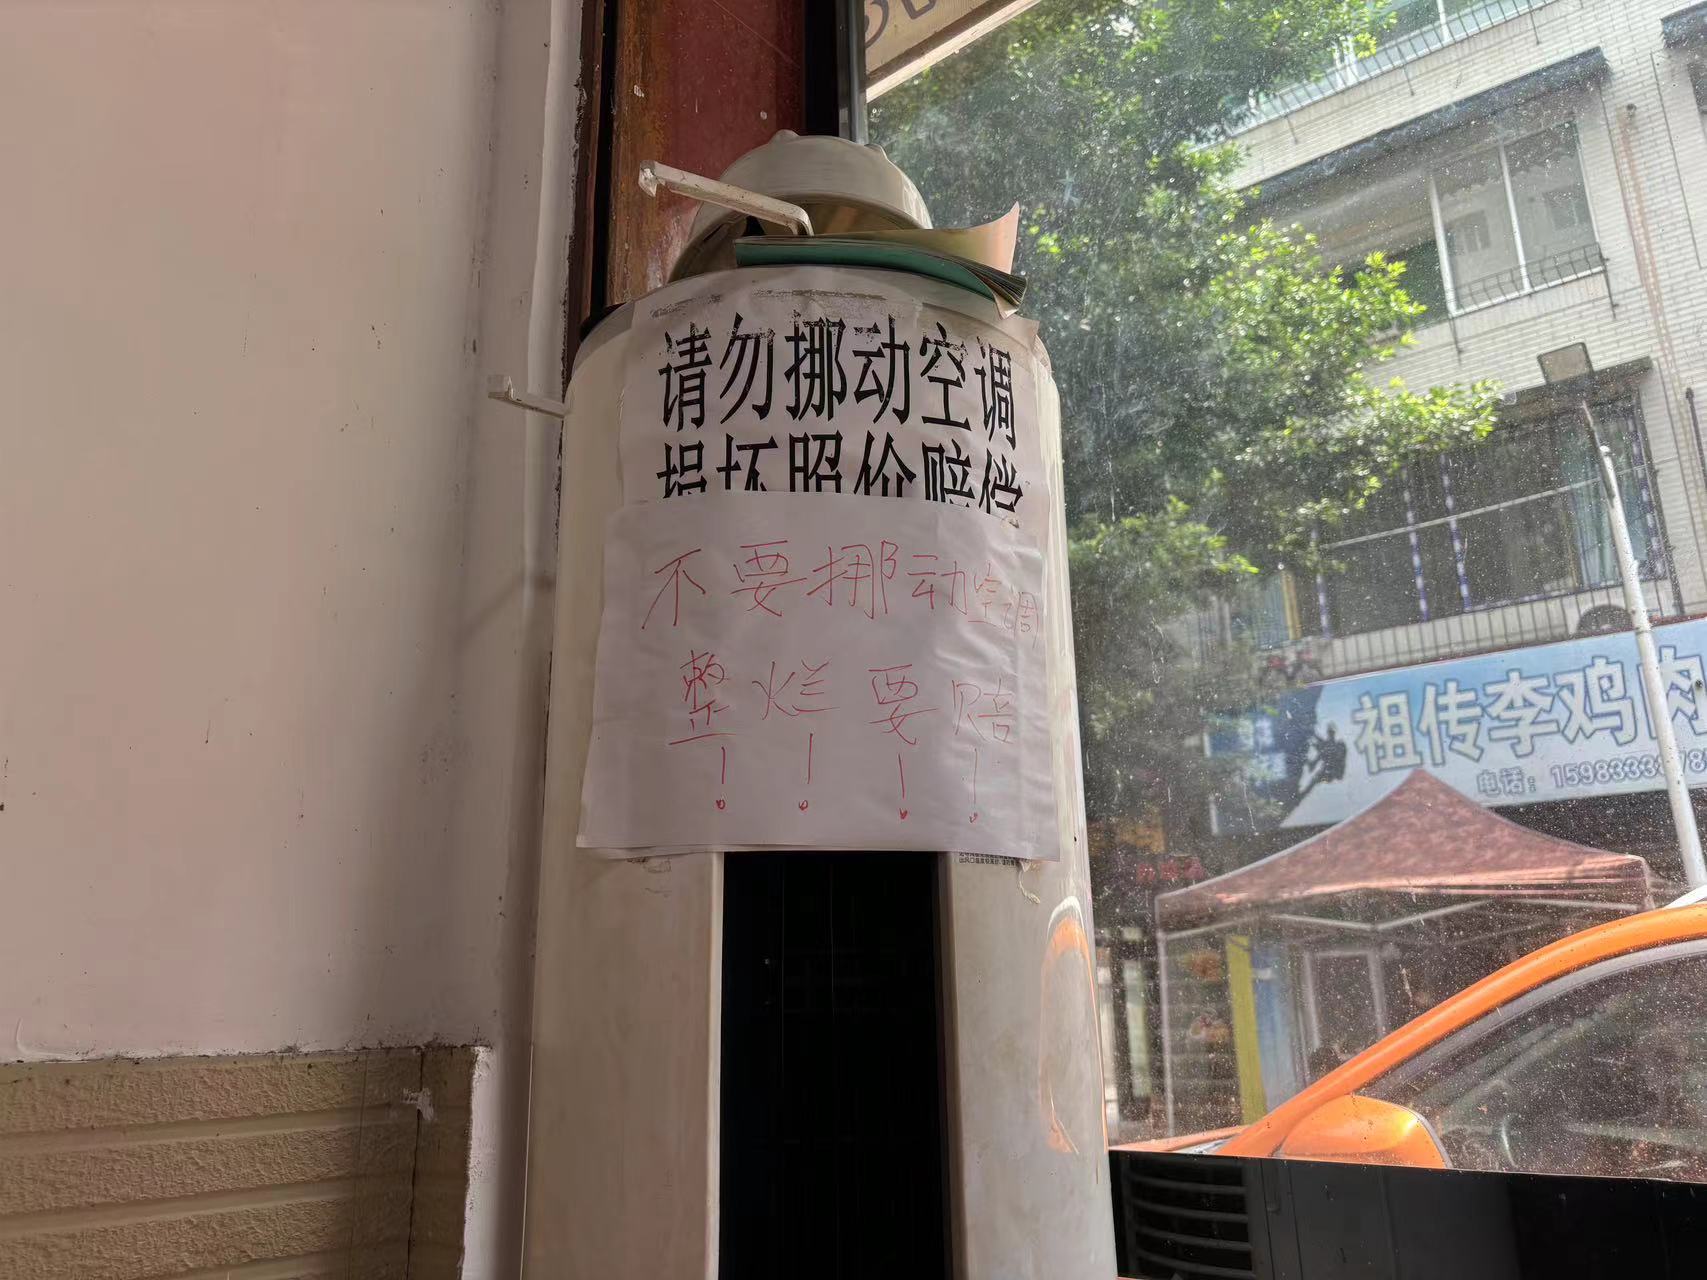 请勿挪动空调
损坏照价赔偿
不要挪动空调
整烂要赔
！！！！
祖传李鸡肉
电话：